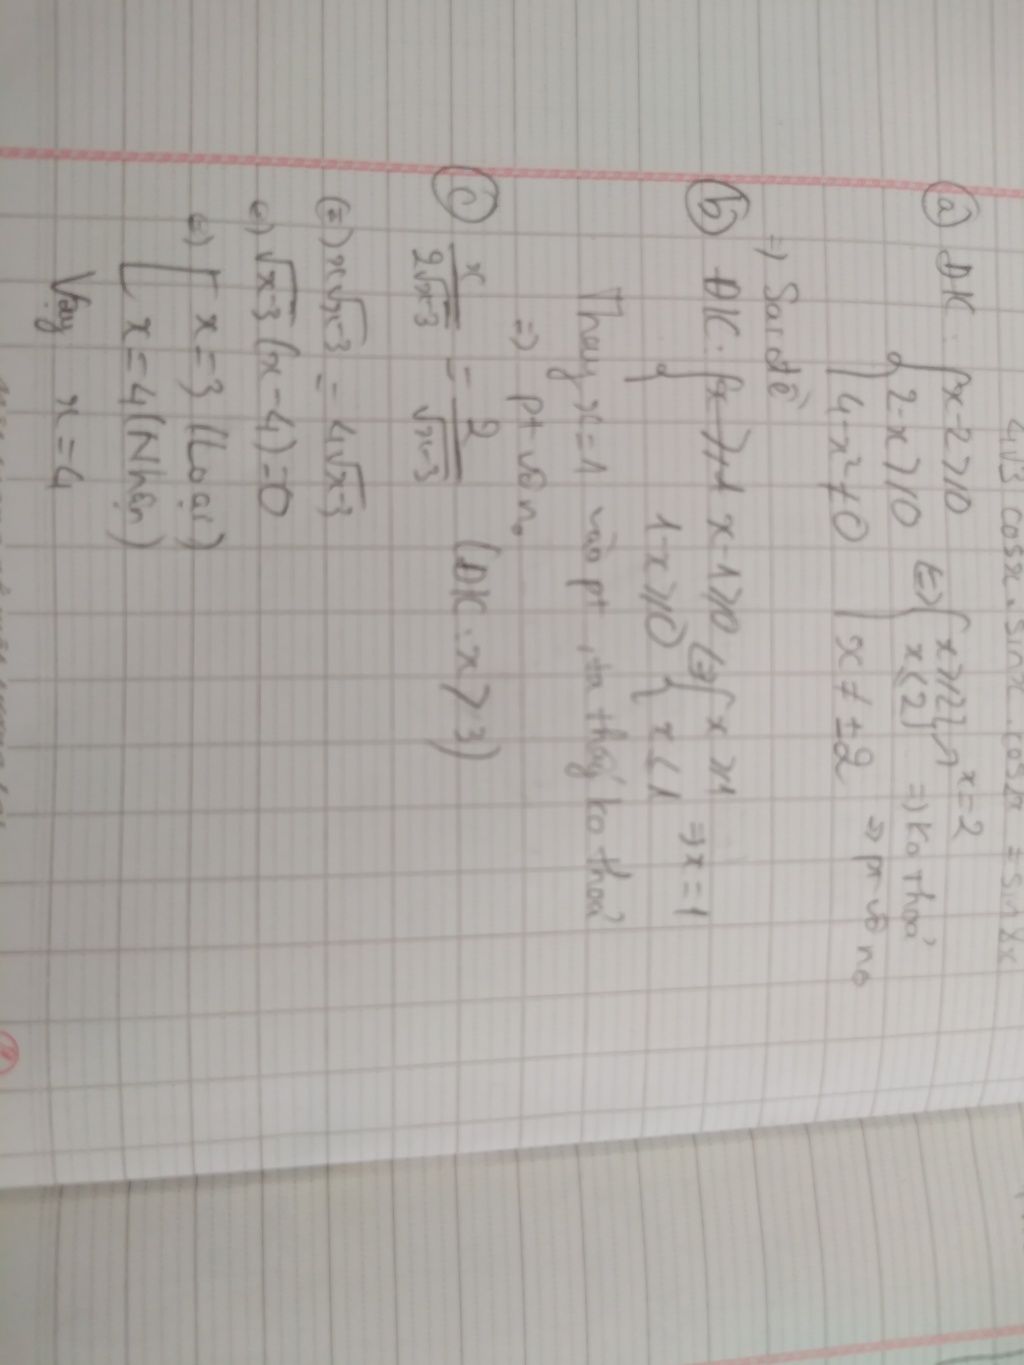 4√3 cosx.sinx.cos2x = sin8x
a) ĐK: { x-2 ≥ 0 (=) { x ≥ 2 } x=2
2-x ≥ 0 x ≤ 2 => ko thoả
4-x² ≠ 0 x ≠ ±2 => pt vô no
=> Sai đề
b) ĐK: { x-1 ≥ 0 (=) { x ≥ 1 => x=1
1-x ≥ 0 x ≤ 1
Thay x=1 vào pt, ta thấy ko thoả
=> pt vô no
c) x/2√x-3 = 2/√x-3 (ĐK: x > 3)
(=) x√x-3 = 4√x-3
(=) √x-3 (x-4) = 0
(=) [ x=3 (Loại)
x=4 (Nhận)
Vậy x=4